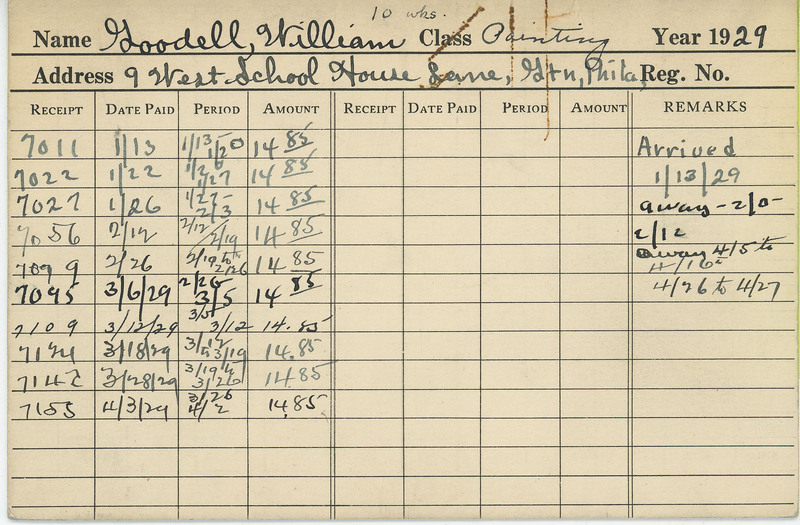 10 wks.
Name Goodell, William Class Painting Year 1929
Address 9 West School House Lane, Gtn, Phila. Reg. No.
RECEIPT DATE PAID PERIOD AMOUNT RECEIPT DATE PAID PERIOD AMOUNT REMARKS
7011 1/13 1/13- 1/20 14 85 Arrived
7022 1/22 1/20 1/27 14 85 1/13/29
7027 1/26 1/27- 2/3 14 85 away - 2/5-
7056 2/12 2/12 2/19 14 85 2/12
7079 2/26 2/19 to 2/26 14 85 away 4/5 to
4/16
7095 3/6/29 2/26 3/5 14 85 4/26 to 4/27
7109 3/12/29 3/5 3/12 14.85
7124 3/18/29 3/12 3/19 14.85
7142 3/28/29 3/19 3/26 14.85
7155 4/3/29 3/26 4/2 14.85